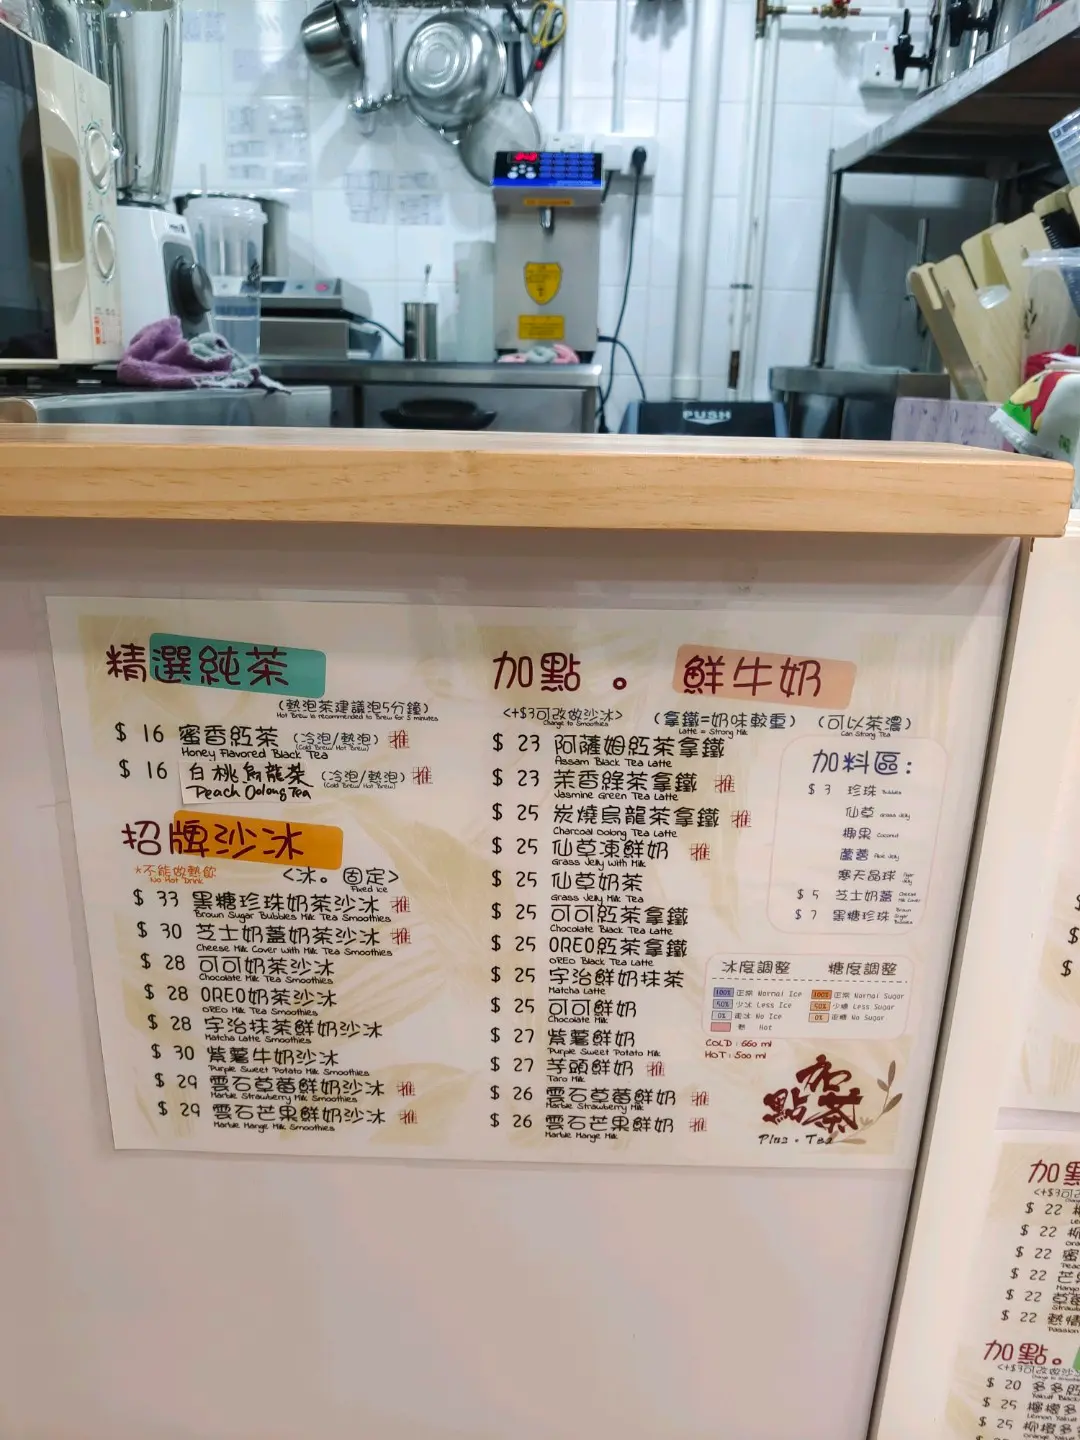 PUSH
精選純茶
(熱泡茶建議泡5分鐘)
Hot Brew is recommended to Brew for 5 minutes
$ 16 蜜香紅茶 (冷泡/熱泡) 推
Honey Flavored Black Tea (Cold Brew/Hot Brew)
$ 16 白桃烏龍茶 (冷泡/熱泡) 推
Peach Oolong Tea (Cold Brew/Hot Brew)
招牌沙冰
*不能做熱飲 <冰。固定>
No Hot Drink Fixed Ice
$ 33 黑糖珍珠奶茶沙冰 推
Brown Sugar Bubbles Milk Tea Smoothies
$ 30 芝士奶蓋奶茶沙冰 推
Cheese Milk Cover with Milk Tea Smoothies
$ 28 可可奶茶沙冰
Chocolate Milk Tea Smoothies
$ 28 OREO奶茶沙冰
OREO Milk Tea Smoothies
$ 28 宇治抹茶鮮奶沙冰
Matcha Latte Smoothies
$ 30 紫薯牛奶沙冰
Purple Sweet Potato Milk Smoothies
$ 29 雲石草莓鮮奶沙冰 推
Marble Strawberry Milk Smoothies
$ 29 雲石芒果鮮奶沙冰 推
Marble Mange Milk Smoothies
加點。鮮牛奶
<+$3可改做沙冰> (拿鐵=奶味較重) (可以茶濃)
Change to Smoothies Latte = Strong Milk Can Strong Tea
$ 23 阿薩姆紅茶拿鐵
Assam Black Tea Latte
$ 23 茉香綠茶拿鐵 推
Jasmine Green Tea Latte
$ 25 炭燒烏龍茶拿鐵 推
Charcoal Oolong Tea Latte
$ 25 仙草凍鮮奶 推
Grass Jelly with Milk
$ 25 仙草奶茶
Grass Jelly Milk Tea
$ 25 可可紅茶拿鐵
Chocolate Black Tea Latte
$ 25 OREO紅茶拿鐵
OREO Black Tea Latte
$ 25 宇治鮮奶抹茶
Matcha Latte
$ 25 可可鮮奶
Chocolate Milk
$ 27 紫薯鮮奶
Purple Sweet Potato Milk
$ 27 芋頭鮮奶 推
Taro Milk
$ 26 雲石草莓鮮奶 推
Marble Strawberry Milk
$ 26 雲石芒果鮮奶 推
Marble Mange Milk
加料區:
$ 3 珍珠 Bubbles
仙草 Grass Jelly
椰果 Coconut
蘆薈 Aloe Jelly
寒天晶球
$ 5 芝士奶蓋 Cheese Milk Cover
$ 7 黑糖珍珠 Brown Sugar Bubbles
冰度調整 糖度調整
100% 正常 Normal Ice 100% 正常 Normal Sugar
50% 少冰 Less Ice 50% 少糖 Less Sugar
0% 走冰 No Ice 0% 走糖 No Sugar
熱 Hot
COLD : 660 ml
HOT : 500 ml
加點茶
Plus · Tea
加點
$ 22
$ 22
$ 22 蜜
$ 22 芒
$ 22 草莓
$ 22 熱情
加點。
$ 20 多多
$ 25 檸檬多
$ 25 柳橙多